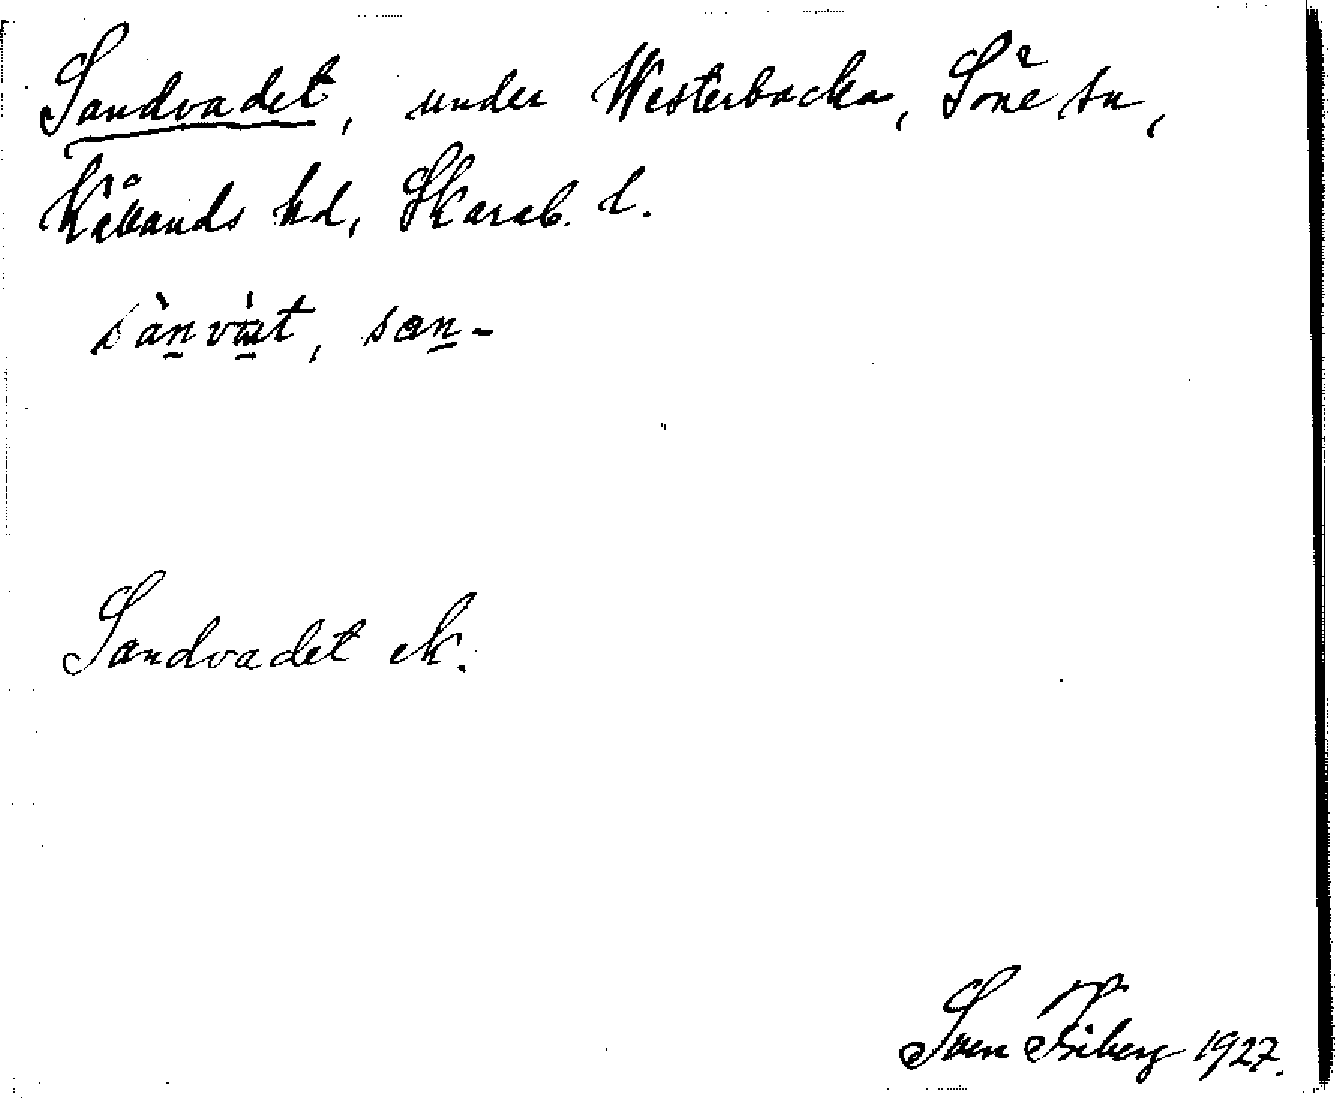 Sandvadet, under Westerbacka, Söne sn,
Kållands hd, Skarab. l.
sàn̠vàt, san̠-
Sandvadet ek.
Sven Friberg 1927.